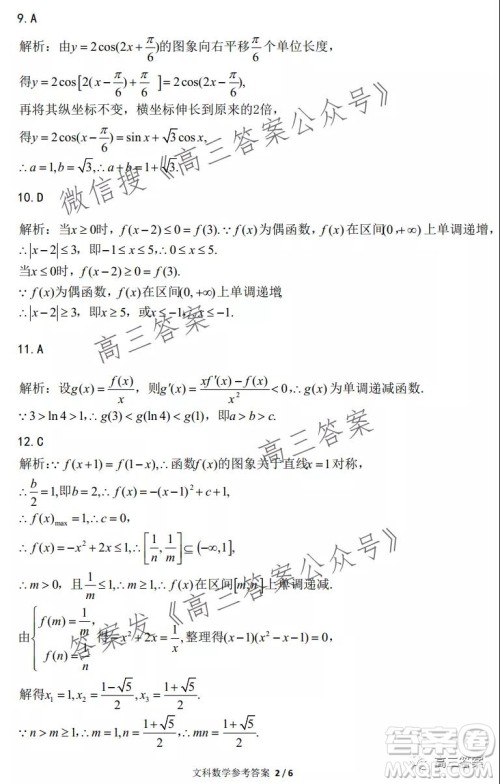 9. A
解析：由y=2cos(2x+π/6)的图象向右平移π/6个单位长度，
得y=2cos[2(x-π/6)+π/6]=2cos(2x-π/6),
再将其纵坐标不变，横坐标伸长到原来的2倍，
得y=2cos(x-π/6)=sin x+√3cos x,
∴a=1,b=√3,∴a+b=1+√3.
10. D
解析：当x≥0时，f(x-2)≤0=f(3).∵f(x)为偶函数，f(x)在区间[0,+∞)上单调递增
∴|x-2|≤3，即-1≤x≤5,∴0≤x≤5.
当x≤0时，f(x-2)≥0=f(3).
∵f(x)为偶函数，f(x)在区间[0,+∞)上单调递增
∴|x-2|≥3，即x≥5，或x≤-1,∴x≤-1.
11. A
解析：设g(x)=f(x)/x，则g′(x)=(xf′(x)-f(x))/x²<0,∴g(x)为单调递减函数.
∵3>ln4>1,∴g(3)<g(ln4)<g(1)，即a>b>c.
12. C
解析：∵f(x+1)=f(1-x),∴函数f(x)的图象关于直线x=1对称，
∴b/2=1,即b=2,∴f(x)=-(x-1)²+c+1,
∴f(x)max=1,∴c=0，
∴f(x)=-x²+2x≤1,∴[1/n,1/m]⊆(-∞,1],
∴m>0，且1/m≤1,∴m≥1,∴f(x)在区间[m,n]上单调递减.
由{f(m)=1/m, f(n)=1/n 得-x²+2x=1/x,整理得(x-1)(x²-x-1)=0，
解得x₁=1,x₂=(1-√5)/2,x₃=(1+√5)/2.
∵n>m≥1,∴m=1,n=(1+√5)/2,∴mn=(1+√5)/2.
文科数学参考答案 2/6
微信搜《高三答案公众号》
高三答案
高三答案
答案发《高三答案公众号》
高三答案